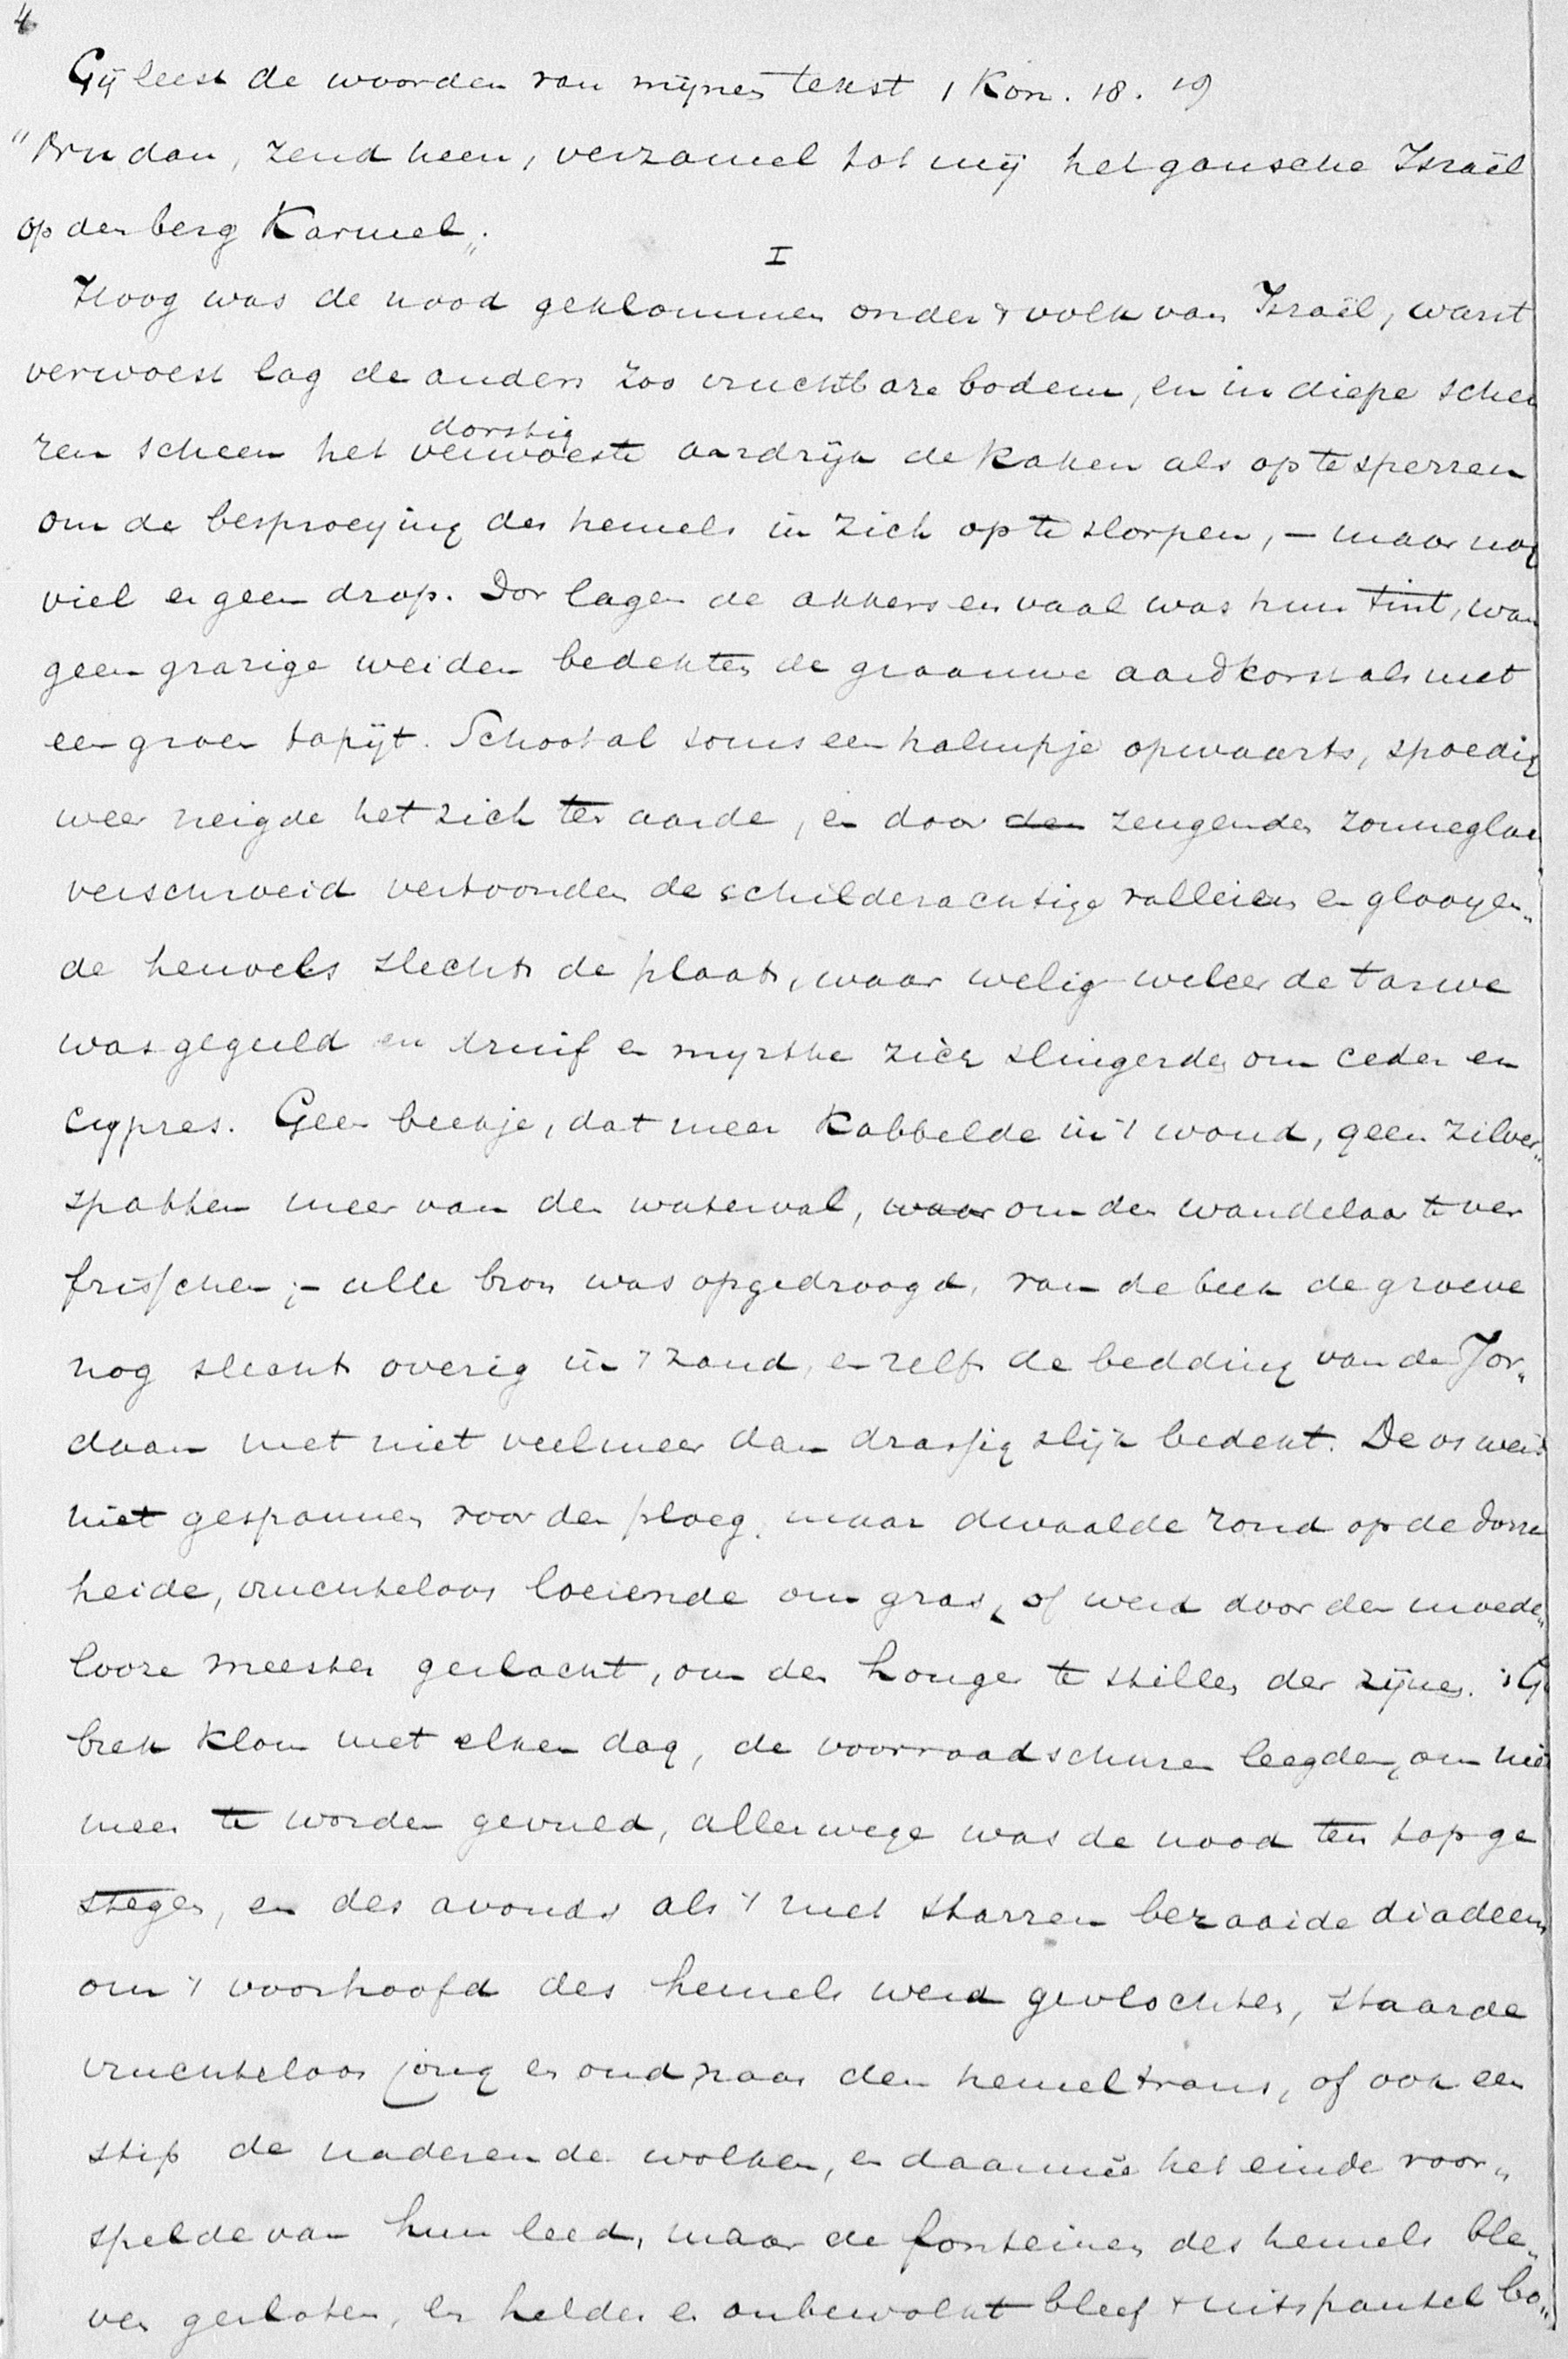 4.
Gij leest de woorden van mijnen tekst 1 Kon. 18. 19
"Nu dan, zend heen, verzamel tot mij het gansche Israël
op den berg Karmel„.
I
Hoog was de nood geklommen onder 't volk van Israël, want
verwoest lag de anders zoo vruchtbare bodem, en in diepe scheu
dorstig
ren scheen het verwoeste aardrijk de kaken als op te sperren
om de besproeying des hemels in zich op te slorpen, – maar nog
viel er geen drop. Dor lagen de akkers en vaal was hun tint, wan
geen grazige weiden bedekten de graauwe aardkorst als met
een groen tapijt. Schoot al soms een halmpje opwaarts, spoedig
weer neigde het zich ter aarde, en door den zengenden zonnegloe
verschroeid vertoonden de schilderachtige valleien en glooyen„
de heuvels slechts de plaats, waar welig weleer de tarwe
was gegeeld en druif en myrthe zich slingerden om ceder en
cypres. Geen beekje, dat meer kabbelde in 't woud, geen zilver„
spatten meer van den waterval, waar om den wandelaar te ver
frisschen; – alle bron was opgedroogd, van de beek de groeve
nog slechts overig in 't zand, en zelfs de bedding van de Jor„
daan met niet veel meer dan drassig slijk bedekt. De os werd
niet gespannen voor den ploeg, maar dwaalde rond op de dorre
heide, vruchteloos loeiende om gras, of werd door den moede„
loozen meester geslacht, om den honger te stillen der zijnen. 't Ge
brek klom met elken dag, de voorraadschuren leegden, om niet
meer te worden gevuld, allerwege was de nood ten top ge
stegen, en des avonds als 't met starren bezaaide diadeem
om 't voorhoofd des hemels werd gevlochten, staarde
vruchteloos jong en oud naar den hemeltrans, of ook een
stip de naderende wolken, en daarmeê het einde voor„
spelde van hun leed, maar de fonteinen des hemels ble„
ven gesloten, en helder en onbewolkt bleef 't uitspansel bo„